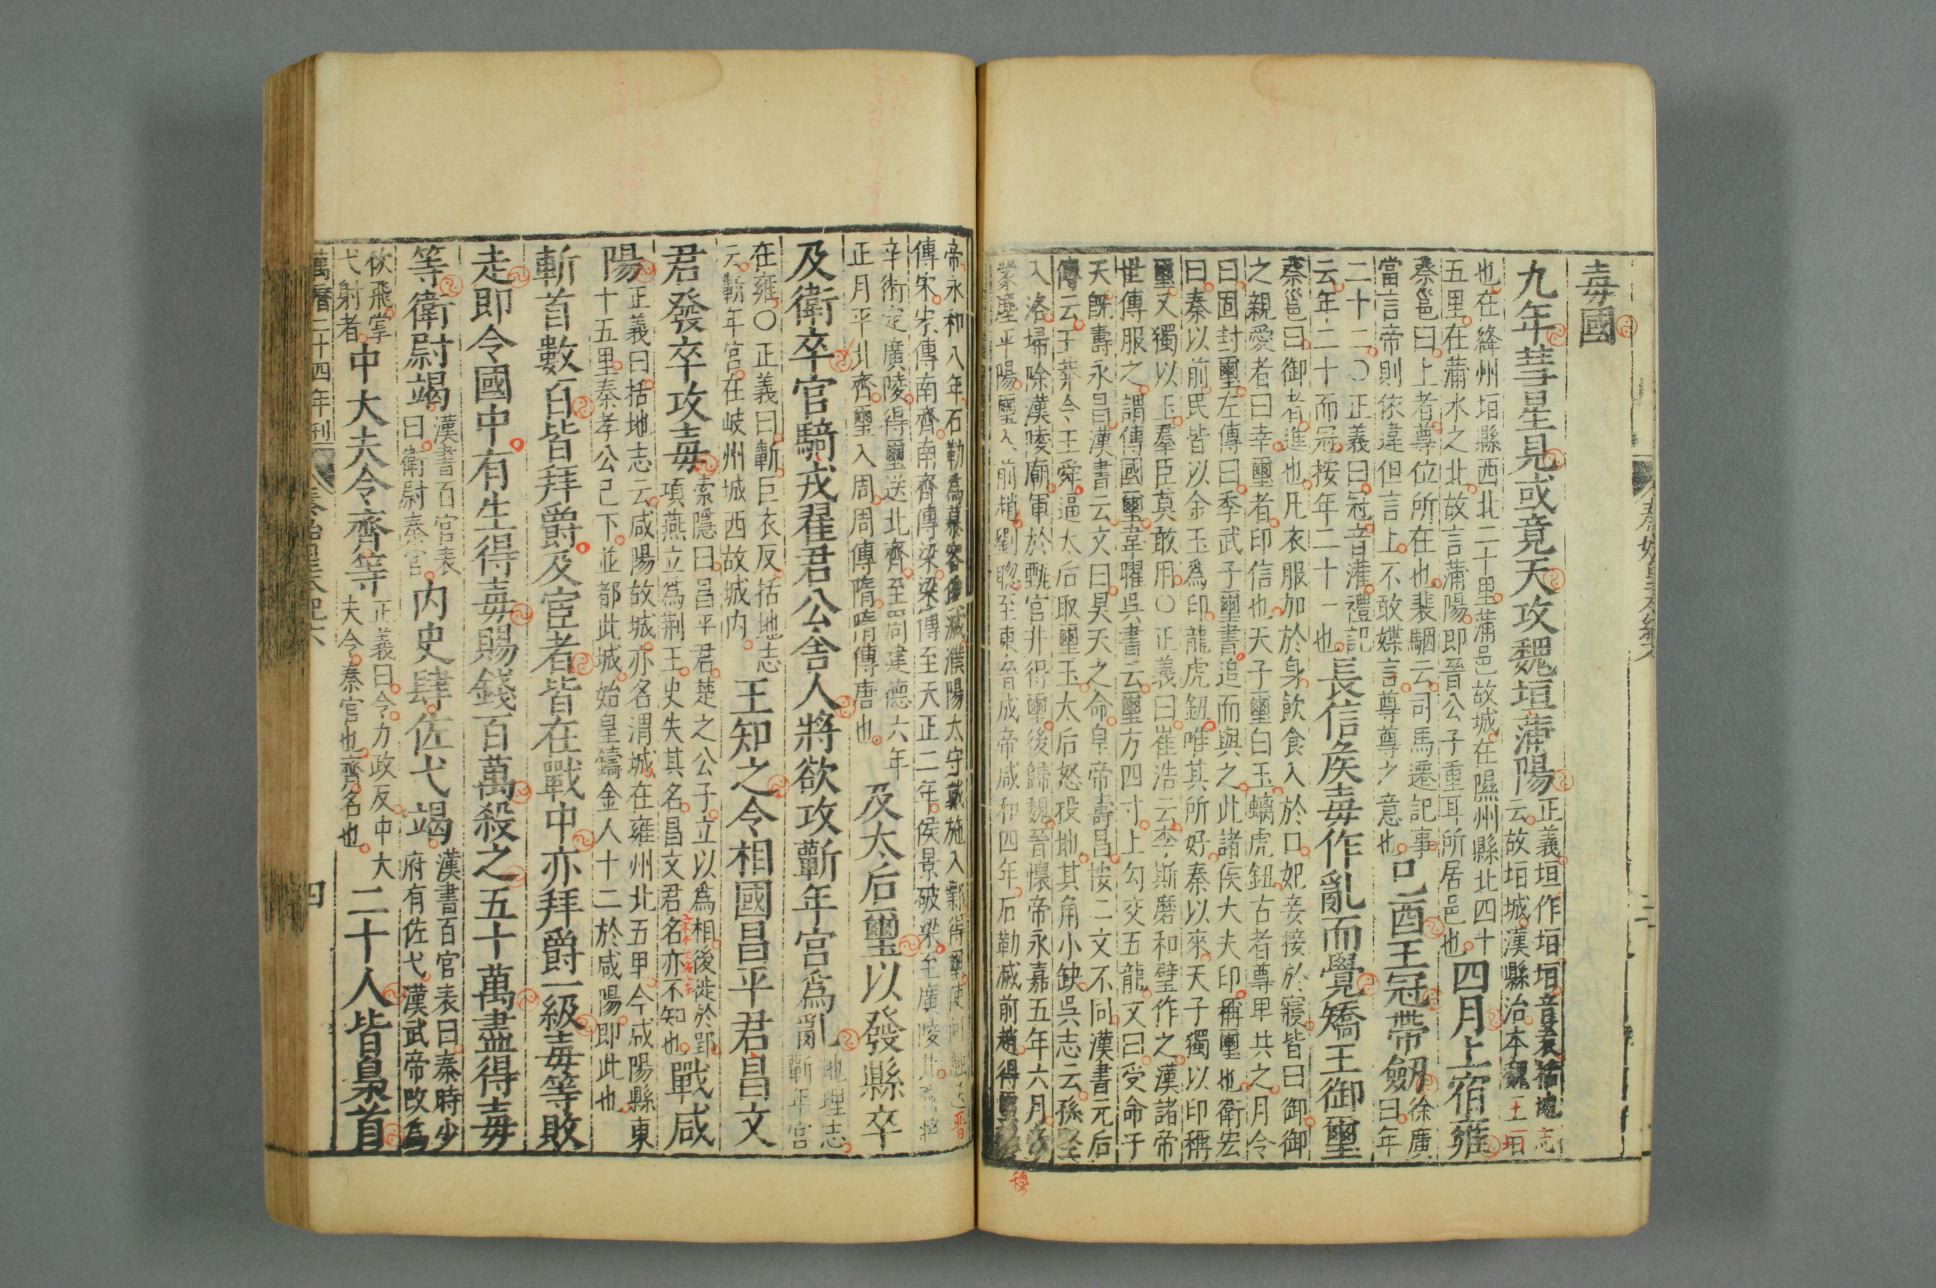 毐國
九年彗星見或竟天攻魏垣蒲陽
正義垣作垣垣音袁括地志
云故垣城漢縣治本魏王垣
也在絳州垣縣西北二十里蒲邑故城在隰州縣北四十
五里在蒲水之北故言蒲陽即晉公子重耳所居邑也
四月上宿雍
蔡邕曰上者尊位所在也裴駰云司馬遷記事
當言帝則依違但言上不敢媟言尊尊之意也
己酉王冠帶劒
徐廣
曰年
二十二〇正義曰冠音灌禮記
云年二十而冠按年二十一也
長信矦毐作亂而覺矯王御璽
蔡邕曰御者進也凡衣服加於身飲食入於口妃妾接於寢皆曰御御
之親愛者曰幸璽者印信也天子璽白玉螭虎鈕古者尊卑共之月令
曰固封璽左傳曰季武子璽書追而與之此諸侯大夫印稱璽也衛宏
曰秦以前民皆以金玉爲印龍虎鈕唯其所好秦以來天子獨以印稱
璽又獨以玉羣臣莫敢用〇正義曰崔浩云李斯磨和璧作之漢諸帝
世傳服之謂傳國璽韋曜吳書云璽方四寸上勾交五龍文曰受命于
天既壽永昌漢書云文曰昊天之命皇帝壽昌按二文不同漢書元后
傳云王莽令王舜逼太后取璽玉太后怒投地其角小缺吳志云孫堅
入洛埽除漢陵廟軍於甄官井得璽後歸魏晉懷帝永嘉五年六月
蒙塵平陽璽入前趙劉聰至東晉成帝咸和四年石勒滅前趙得璽
穆
帝永和八年石勒爲慕容俊滅濮陽太守戴施入鄴得璽使何融送晉
傳宋宋傳南齊南齊傳梁梁傳至天正二年侯景破梁至廣陵北齊將
辛術定廣陵得璽送北齊至周建德六年
正月平北齊璽入周周傳隋隋傳唐也
及太后璽以發縣卒
及衛卒官騎戎翟君公舍人將欲攻蘄年宮爲亂
地理志
蘄年宮
在雍〇正義曰蘄巨衣反括地志
云蘄年宮在岐州城西故城內
王知之令相國昌平君昌文
君發卒攻毐
索隱曰昌平君楚之公子立以爲相後徙於郢
項燕立爲荆王史失其名昌文君名亦不知也
戰咸
陽
正義曰括地志云咸陽故城亦名渭城在雍州北五里今咸陽縣東
十五里秦孝公已下並都此城始皇鑄金人十二於咸陽即此也
斬首數百皆拜爵及宦者皆在戰中亦拜爵一級毐等敗
走即令國中有生得毐賜錢百萬殺之五十萬盡得毐
等衛尉竭
漢書百官表
曰衛尉秦官
內史肆佐弋竭
漢書百官表曰秦時少
府有佐弋漢武帝改爲
佽飛掌
弋射者
中大夫令齊等
正義曰令力政反中大
夫令秦官也齊名也
二十人皆梟首
萬曆二十四年刊
秦始皇本紀六
四